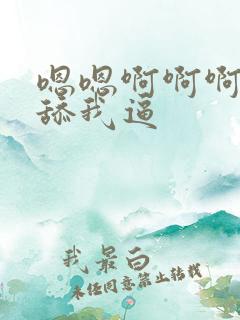 嗯嗯啊啊啊
舔我逼
我最白
未经同意禁止转载